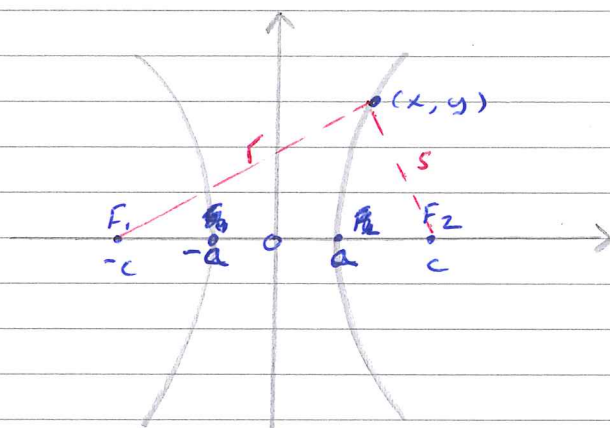 (x, y)
r
s
F₁ F₂
-a O a
-c c